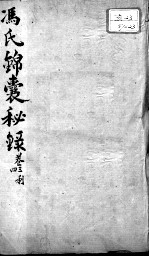 馮氏錦囊秘録
卷三
四
利